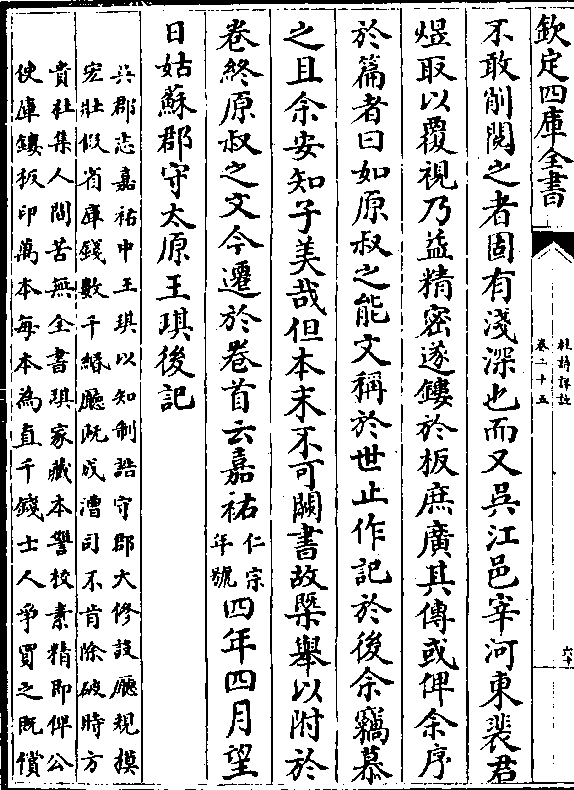 欽定四庫全書
杜詩詳註
卷二十五
六十
不敢削閱之者固有淺深也而又吳江邑宰河東裴君
煜取以覆視乃益精密遂鏤於板庶廣其傳或俾余序
於篇者曰如原叔之能文稱於世止作記於後余竊慕
之且余安知子美哉但本末不可闕書故槩舉以附於
卷終原叔之文今遷於卷首云嘉祐仁宗年號四年四月望
日姑蘇郡守太原王琪後記
吳郡志嘉祐中王琪以知制誥守郡大修設廳規模
宏壯假省庫錢數千緡廳既成漕司不肯除破時方
貴杜集人間苦無全書琪家藏本讐校素精即俾公
使庫鏤板印萬本每本為直千錢士人爭買之既償